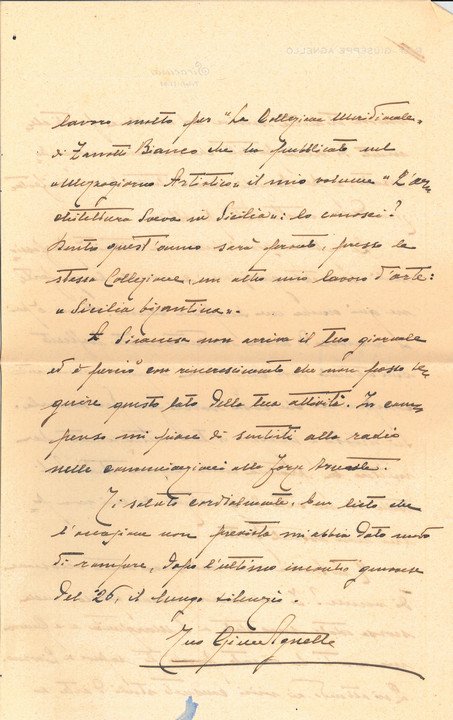 lavoro molto per "La Collezione Meridionale„
di Zanotti Bianco che ha pubblicato nel
"Mezzogiorno Artistico„ il mio volume "L'arc
chitettura Sveva in Sicilia„: lo conosci?
Dentro quest'anno sarà pronto, presso la
stessa Collezione, un altro mio lavoro d'arte:
"Sicilia bizantina„.
A Siracusa non arriva il tuo giornale
ed è perciò con rincrescimento che non posso se-
guire questo lato della tua attività. In com-
penso mi piace di sentirti alla radio
nelle comunicazioni alle Forze Armate.
Ti saluto cordialmente, ben lieto che
l'occasione non prevista mi abbia dato modo
di rompere, dopo l'ultimo incontro genovese
del '26, il lungo silenzio.
Tuo Gius. Agnello
GIUSEPPE AGNELLO
Siracusa